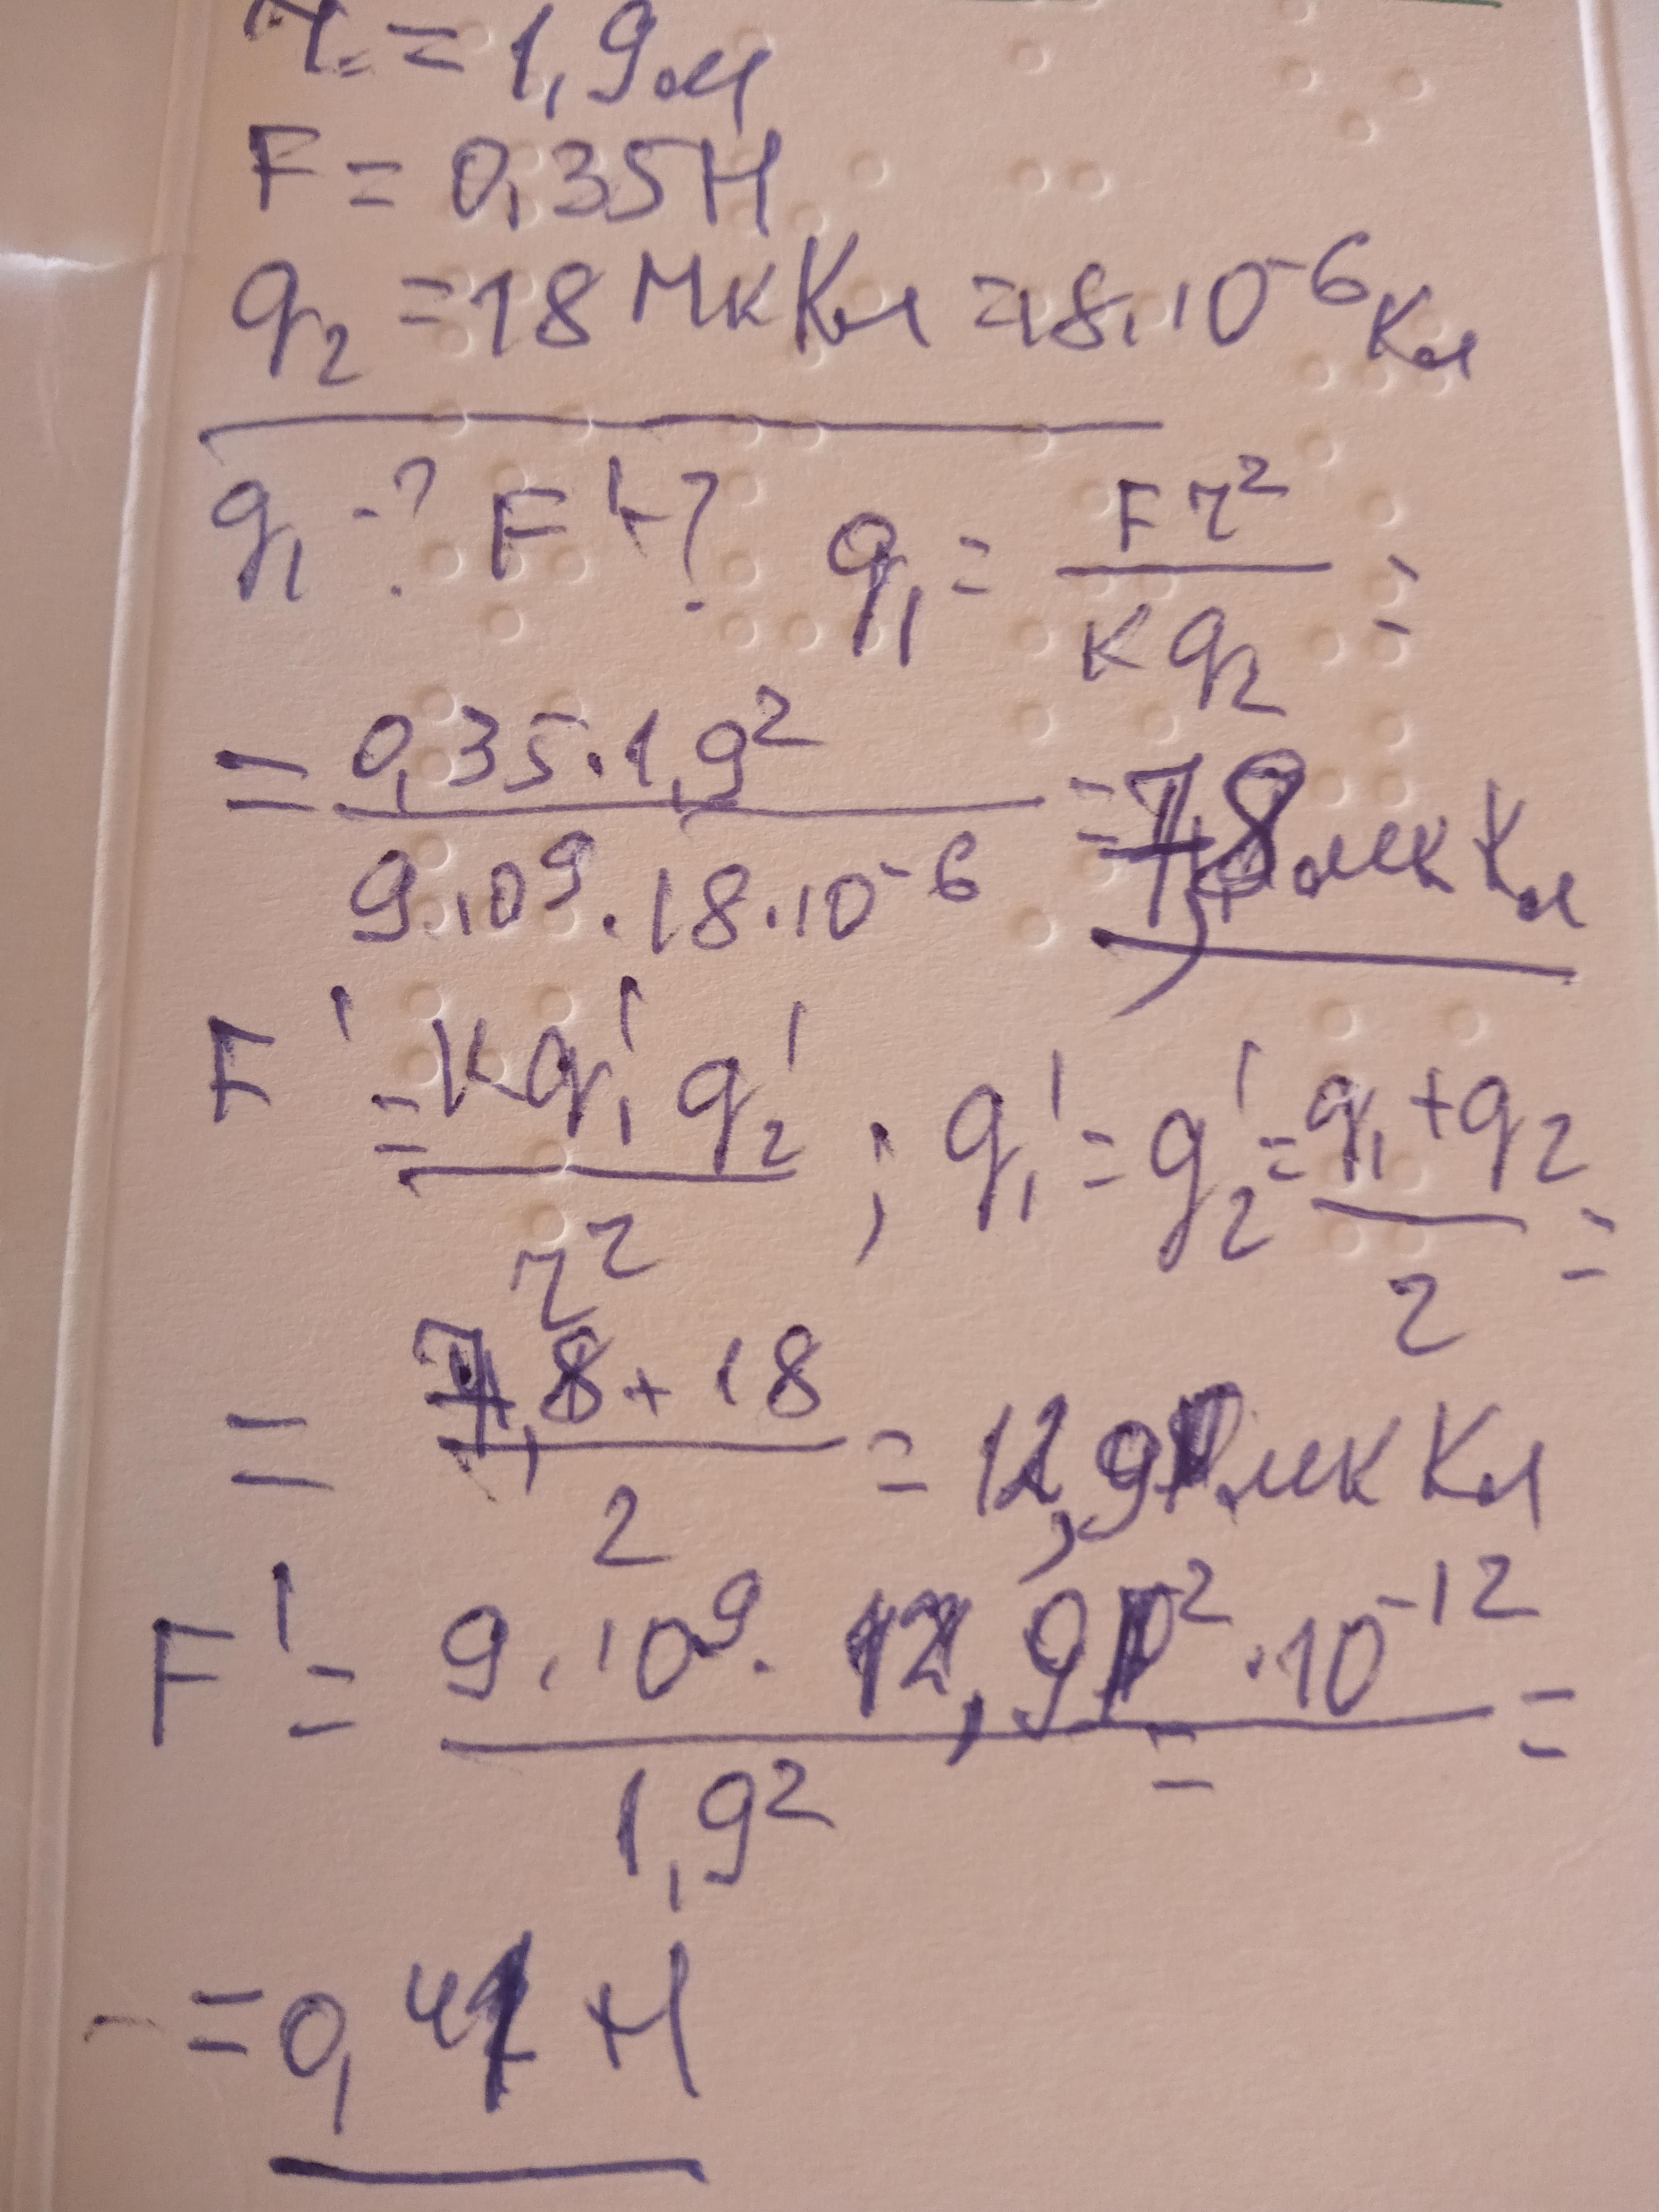 r = 1,9 м
F = 0,35 Н
q₂ = 18 мкКл = 18·10⁻⁶ Кл
q₁ - ? F' - ? q₁ = Fr²/kq₂ =
= 0,35·1,9²/9·10⁹·18·10⁻⁶ = 7,8 мкКл
F' = kq₁'q₂'/r² ; q₁' = q₂' = q₁+q₂/2 =
= 7,8+18/2 = 12,9 мкКл
F' = 9·10⁹·12,9²·10⁻¹²/1,9² =
= 0,41 Н